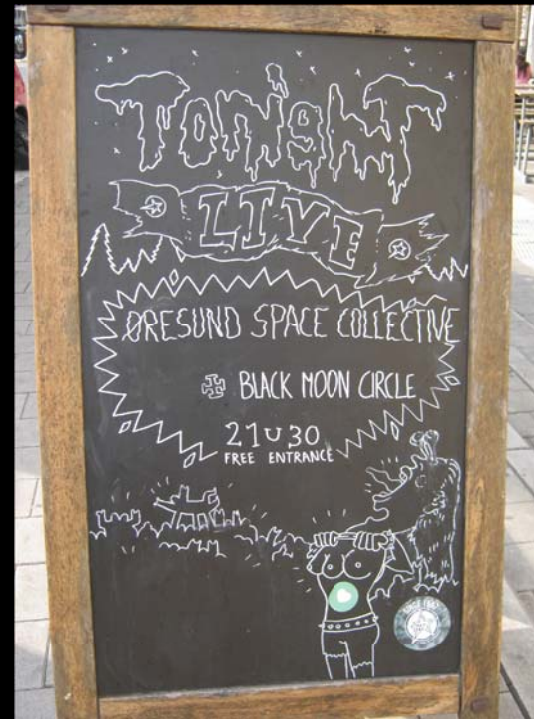 TONIGHT
LIVE
ØRESUND SPACE COLLECTIVE
✠ BLACK MOON CIRCLE
21U30
FREE ENTRANCE